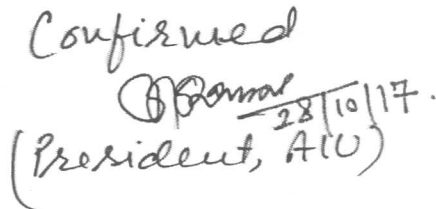 Confirmed
28/10/17.
(President, AIU)